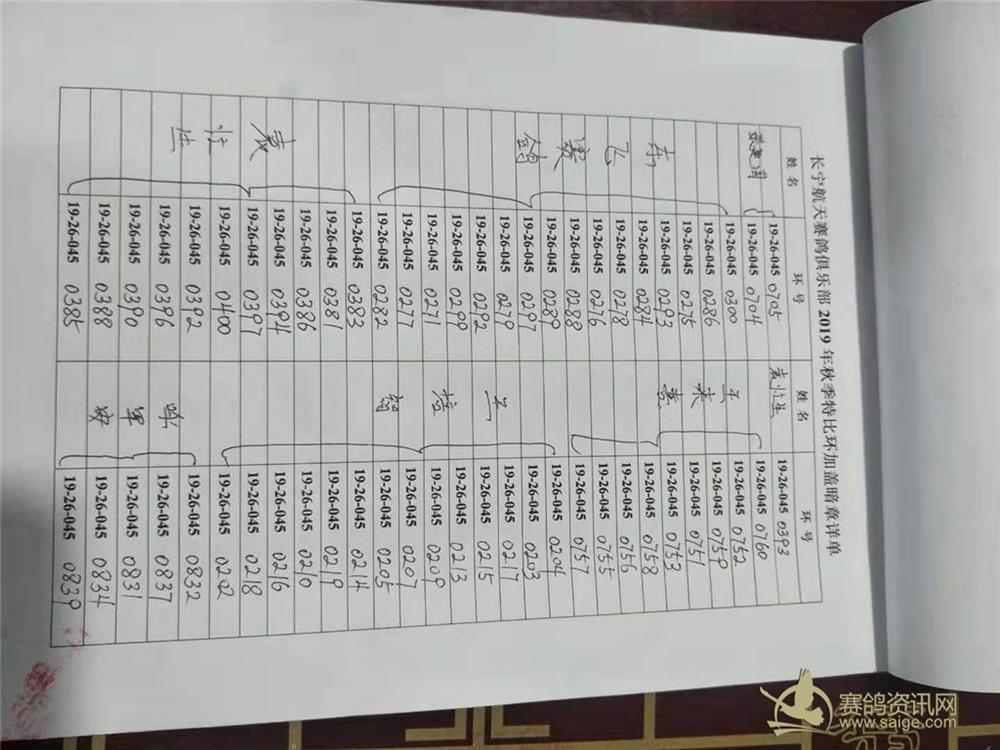 长宁航天赛鸽俱乐部 2019 年秋季特比环加盖暗章详单
姓名 环号 姓名 环号
19-26-045 0705 19-26-045 0393
19-26-045 0704 19-26-045 0760
19-26-045 0300 19-26-045 0752
19-26-045 0286 19-26-045 0759
19-26-045 0275 19-26-045 0751
19-26-045 0293 19-26-045 0753
19-26-045 0284 19-26-045 0758
19-26-045 0278 19-26-045 0756
19-26-045 0276 19-26-045 0755
飞赛鸽 19-26-045 0288 19-26-045 0757
19-26-045 0289 19-26-045 0204
19-26-045 0297 19-26-045 0203
19-26-045 0279 19-26-045 0217
19-26-045 0292 19-26-045 0215
19-26-045 0299 19-26-045 0213
19-26-045 0271 王培智 19-26-045 0209
19-26-045 0277 19-26-045 0207
19-26-045 0282 19-26-045 0205
19-26-045 0383 19-26-045 0214
19-26-045 0381 19-26-045 0219
19-26-045 0386 19-26-045 0210
19-26-045 0394 19-26-045 0216
袁 19-26-045 0397 19-26-045 0218
19-26-045 0400 19-26-045 0202
19-26-045 0392 19-26-045 0832
19-26-045 0396 19-26-045 0837
19-26-045 0390 军 19-26-045 0831
19-26-045 0388 19-26-045 0834
19-26-045 0385 19-26-045 0839
赛鸽资讯网
www.saige.com